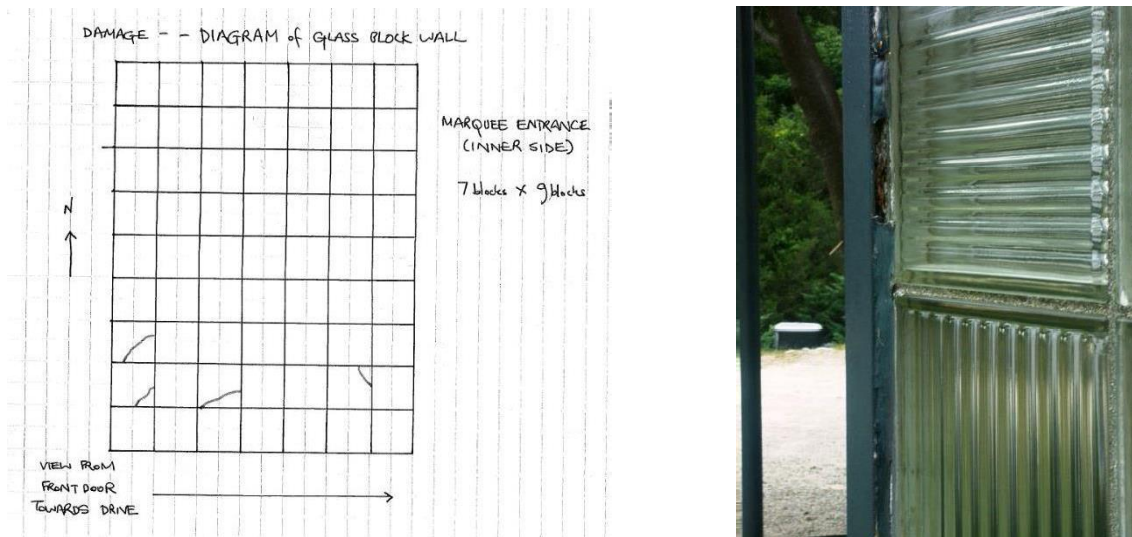 DAMAGE - - DIAGRAM of GLASS BLOCK WALL
MARQUEE ENTRANCE
(INNER SIDE)
7 blocks X 9 blocks
N
VIEW FROM
FRONT DOOR
TOWARDS DRIVE